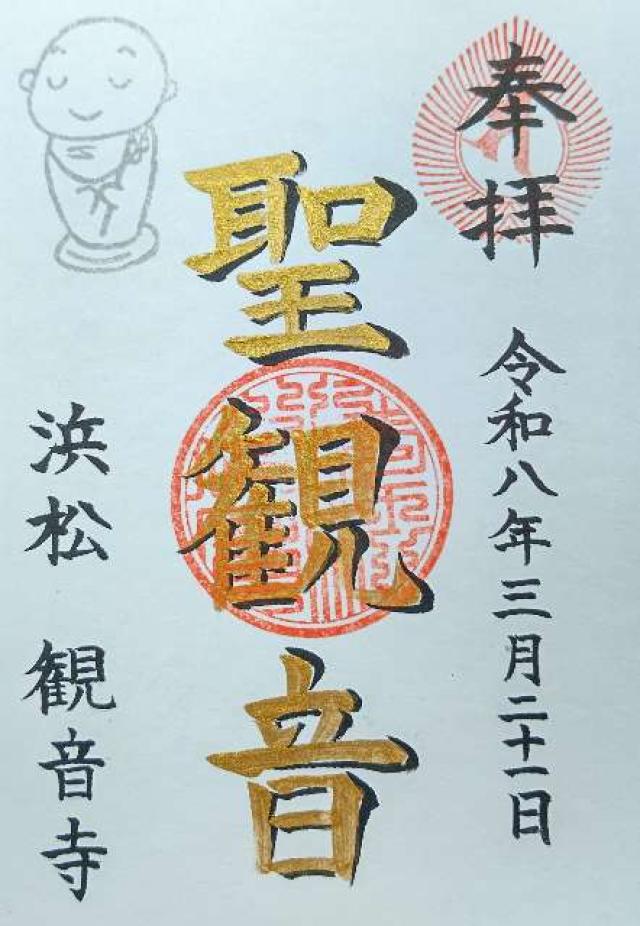 奉拝
令和八年三月二十一日
聖観音
浜松 観音寺